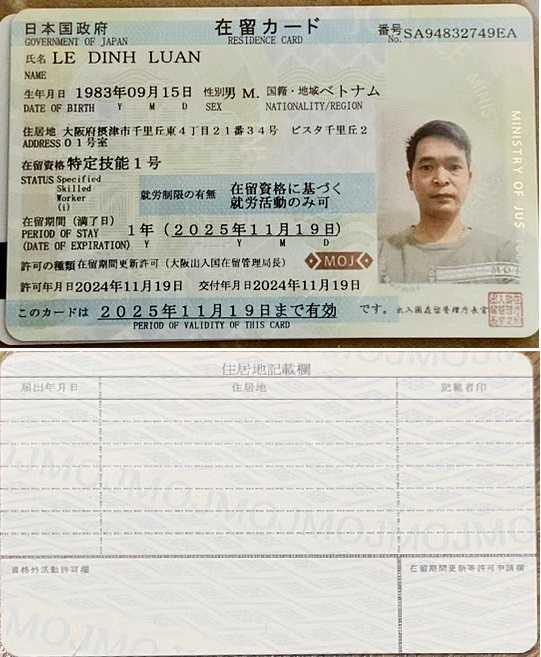 日本国政府 在留カード 番号 SA94832749EA
GOVERNMENT OF JAPAN RESIDENCE CARD No.
氏名 LE DINH LUAN
NAME
生年月日 1983年09月15日 性別 男 M. 国籍・地域 ベトナム
DATE OF BIRTH Y M D SEX NATIONALITY/REGION
住居地 大阪府摂津市千里丘東4丁目21番34号 ビスタ千里丘2
ADDRESS 01号室
在留資格 特定技能1号
STATUS Specified
Skilled
Worker
(i)
就労制限の有無 在留資格に基づく
就労活動のみ可
在留期間(満了日)
PERIOD OF STAY 1年(2025年11月19日)
(DATE OF EXPIRATION) Y Y M D
MOJ
許可の種類 在留期間更新許可(大阪出入国在留管理局長)
許可年月日 2024年11月19日 交付年月日 2024年11月19日
このカードは 2025年11月19日まで有効 です。
PERIOD OF VALIDITY OF THIS CARD
出入国在留管理庁長官
MINISTRY OF JUS
住居地記載欄
届出年月日 住居地 記載者印
MOJMOJMOJMOJMOJ
資格外活動許可欄 在留期間更新等許可申請欄